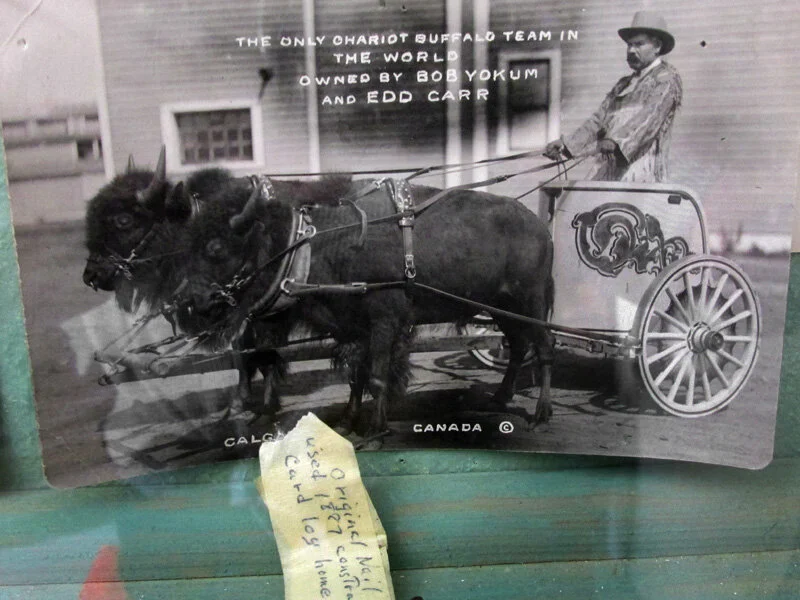 THE ONLY CHARIOT BUFFALO TEAM IN
THE WORLD
OWNED BY BOB YOKUM
AND EDD CARR
CANADA ©
Original Nail
used 1887
Card log home